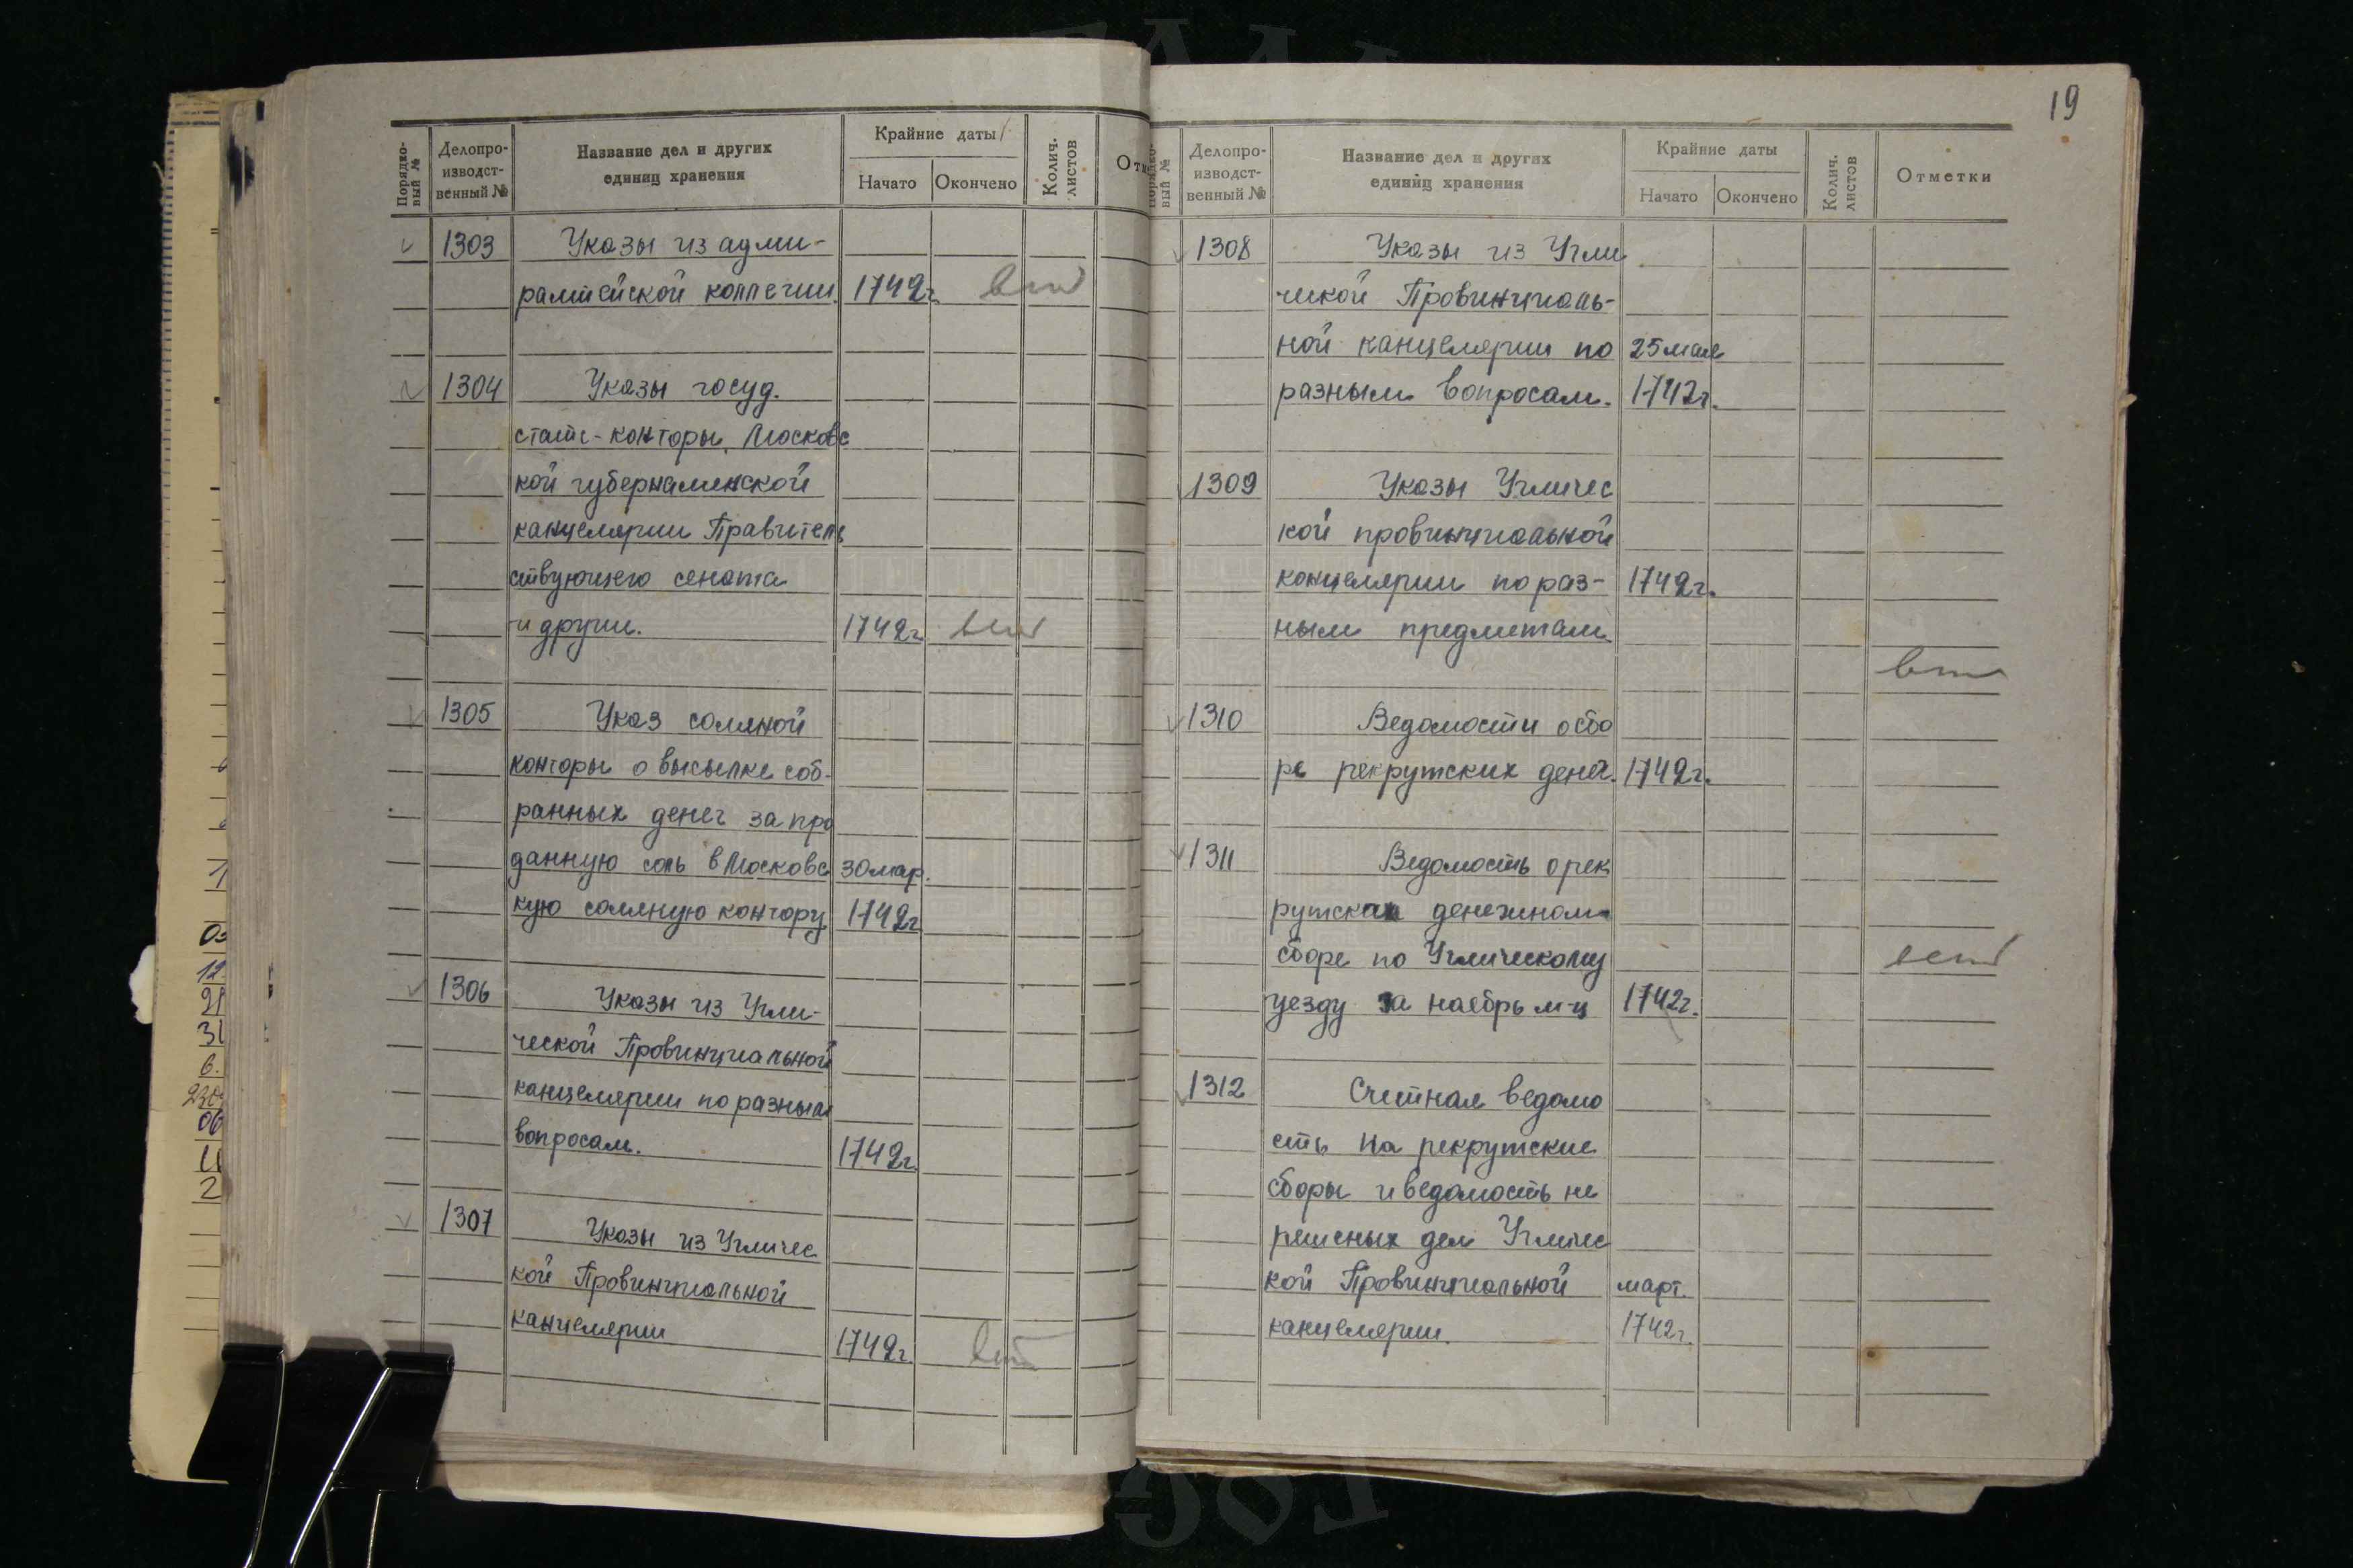 Порядко-
вый №
Делопро-
изводст-
венный №
Название дел и других
единиц хранения
Крайние даты
Начато
Окончено
Колич.
листов
1303 Указы из адми-
ралтейской коллегии 1742г.
1304 Указы госуд.
статс-конторы, Московс
кой губернаменской
канцелярии Правитель
ствующего сената
и други. 1742г
1305 Указ соляной
конторы о высылке соб-
ранных денег за про
данную соль в Московс 30 мар.
кую соляную контору 1742г
1306 Указы из Угли-
ческой Провинциальной
канцелярии по разным
вопросам. 1742г.
1307 Указы из Угличес
кой Провинциальной
канцелярии 1742г.
19
вый №
Делопро-
изводст-
венный №
Название дел и других
единиц хранения
Крайние даты
Начато
Окончено
Колич.
листов
Отметки
1308 Указы из Угли
ческой Провинциаль-
ной канцелярии по 25 мая
разным вопросам. 1742г.
1309 Указы Угличес
кой провинциальной
канцелярии по раз- 1742г.
ным предметам
1310 Ведомости о сбо
ре рекрутских денег. 1742г.
1311 Ведомость о рек
рутском денежном
сборе по Углическому
уезду за наябрь м-ц 1742г.
1312 Счетная ведомо
сть на рекрутские
сборы и ведомость не
решеных дел Угличес
кой Провинциальной март.
канцелярии. 1742г.